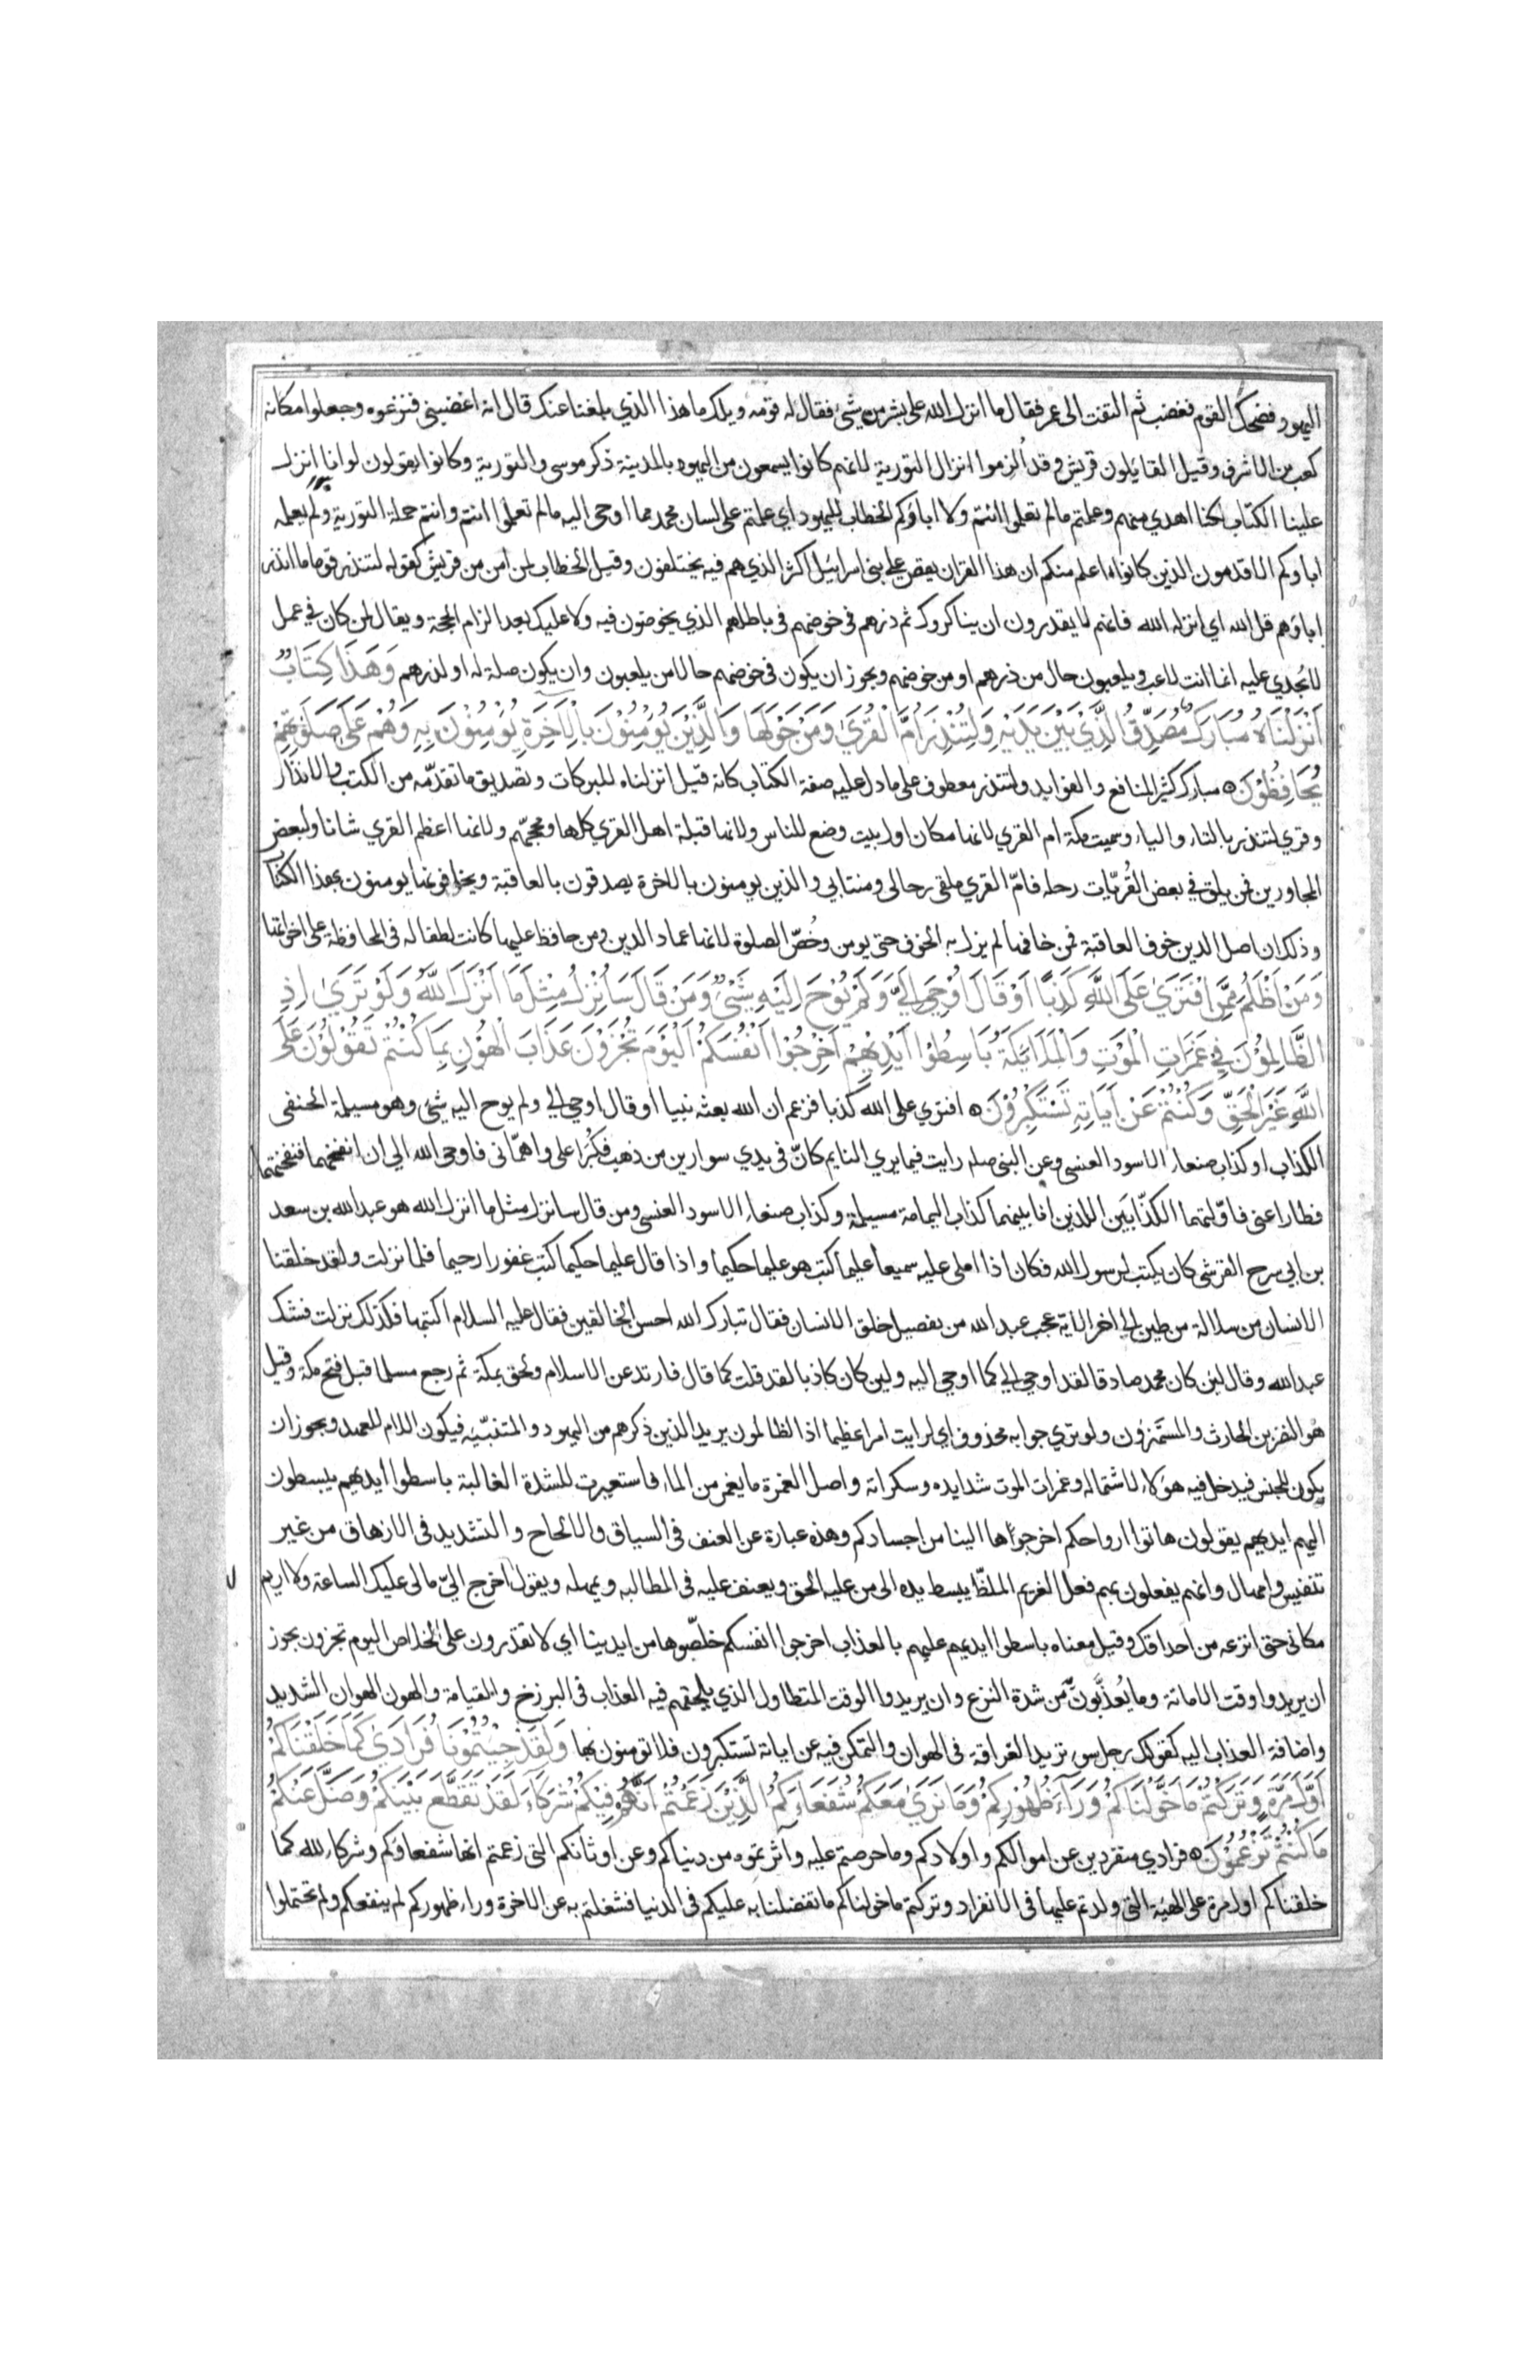 اليهود فضحك القوم فغضب ثم التفت الى عمر فقال ما انزل الله على بشر من شئ فقال له قومه ويلك ما هذا الذي بلغنا عنك قال انه اغضبني فنزعوه وجعلوا مكانه
كعب بن الاشرف وقيل القائلون قريش وقد اُلزموا انزال التورية لانهم كانوا يسمعون من اليهود بالمدينة ذكر موسى والتورية وكانوا يقولون لو انا انزل
علينا الكتاب لكنا اهدي منهم وعلمتم مالم تعلموا انتم ولا اباؤكم الخطاب لليهود اي علمتم على لسان محمد مما اوحى اليه مالم تعلموا انتم وانتم حملة التورية ولم يعلمه
اباؤكم الاقدمون الذين كانوا اعلم منكم ان هذا القران يقص على بني اسرائيل اكثر الذي هم فيه يختلفون وقيل الخطاب لمن امن من قريش كقوله لتنذر قوما ما انذر
اباؤهم قل الله اي انزله الله فانهم لا يقدرون ان يناكروك ثم ذرهم في خوضهم في باطلهم الذي يخوضون فيه ولا عليك بعد الزام الحجة ويقال لمن كان في عمل
لا يُجدي عليه انما انت لاعب ويلعبون حال من ذرهم او من خوضهم ويجوز ان يكون في خوضهم حالا من يلعبون وان يكون صلة له او لذرهم وَهَذَا كِتَابٌ
اَنْزَلْنَاهُ مُبَارَكٌ مُصَدِّقُ الَّذِي بَيْنَ يَدَيْهِ وَلِتُنْذِرَ اُمَّ الْقُرَىٰ وَمَنْ حَوْلَهَا وَالَّذِيْنَ يُؤْمِنُوْنَ بِالْاَخِرَةِ يُؤْمِنُوْنَ بِهِ وَهُمْ عَلَى صَلَوٰتِهِمْ
يُحَافِظُوْنَ ه مبارك كثير المنافع والفوايد ولتنذر معطوف على ما دل عليه صفة الكتاب كانه قيل انزلناه للبركات وتصديق ما تقدّمه من الكتب والانذار
وقري لتنذر بالتاء والياء وسميت مكة ام القري لانها مكان اول بيت وضع للناس ولانها قبلة اهل القري كلها ومحجّهم ولانها اعظم القري شانا ولبعض
المجاورين فمن يلق في بعض القُريّات رحله فامّ القري ملقى رحالي ومنتابي والذين يومنون بالاخرة يصدقون بالعاقبة ويخافونها يومنون بهذا الكتاب
وذلك ان اصل الدين خوف العاقبة فمن خافها لم يزل به الخوف حتى يومن وخُصّ الصلوة لانها عماد الدين ومن حافظ عليها كانت لطفا له في المحافظة على اخواتها
وَمَنْ اَظْلَمُ مِمَّنِ افْتَرَىٰ عَلَى اللَّهِ كَذِبًا اَوْ قَالَ اُوْحِيَ اِلَيَّ وَلَمْ يُوْحَ اِلَيْهِ شَيْئٌ وَمَنْ قَالَ سَاُنْزِلُ مِثْلَ مَا اَنْزَلَ اللَّهُ وَلَوْ تَرَىٰ اِذِ
الظَّالِمُوْنَ فِي غَمَرَاتِ الْمَوْتِ وَالْمَلَايِكَةُ بَاسِطُوْا اَيْدِيْهِمْ اَخْرِجُوْا اَنْفُسَكُمْ اَلْيَوْمَ تُجْزَوْنَ عَذَابَ الْهُوْنِ بِمَا كُنْتُمْ تَقُوْلُوْنَ عَلَى
اللَّهِ غَيْرَ الْحَقِّ وَكُنْتُمْ عَنْ اَيَاتِهِ تَسْتَكْبِرُوْنَ ه افتري على الله كذبا فزعم ان الله بعثه نبيا او قال اوحي الي ولم يوح اليه شئ وهو مسيلمة الحنفي
الكذاب او كذاب صنعاء الاسود العنسي وعن النبي صلم رايت فيما يري النايم كانّ في يدي سوارين من ذهب فكبُرا على واهمّاني فاوحى الله الي ان انفخهما فنفختهما
فطارا عني فاوّلتهما الكذّابَين اللذين انا بينهما كذاب اليمامة مسيلمة وكذاب صنعاء الاسود العنسي ومن قال سانزل مثل ما انزل الله هو عبد الله بن سعد
بن ابي سرح القرشي كان يكتب لرسول الله فكان اذا املى عليه سميعا عليما كتب هو عليما حكيما واذا قال عليما حكيما كتب غفورا رحيما فلما نزلت ولقد خلقنا
الانسان من سلالة من طين الى اخر الاية عجب عبد الله من تفصيل خلق الانسان فقال تبارك الله احسن الخالقين فقال عليه السلام اكتبها فكذلك نزلت فشك
عبد الله وقال لين كان محمد صادقا لقد اوحي الي كما اوحي اليه ولين كان كاذبا لقد قلت كما قال فارتد عن الاسلام ولحق بمكة ثم رجع مسلما قبل فتح مكة وقيل
هو النضر بن الحارث والمستهزؤن ولو تري جوابه محذوف اي لرايت امرا عظيما اذ الظالمون يريد الذين ذكرهم من اليهود والمتنبّيه فيكون اللام للعهد ويجوز ان
يكون للجنس فيدخل فيه هولاء لاشتماله وغمرات الموت شدايده وسكراته واصل الغمرة ما يغمر من الماء فاستعيرت للشدة الغالبة باسطوا ايديهم يبسطون
اليهم ايديهم يقولون هاتوا ارواحكم اخرجوها الينا من اجسادكم وهذه عبارة عن العنف في السياق والالحاح والتشديد في الازهاق من غير
تنفيس وامهال وانهم يفعلون بهم فعل الغريم الملظّ يبسط يده الى من عليه الحق ويعنف عليه في المطالبه ويمهله ويقول اخرج اليّ مالي عليك الساعة ولا اريم
مكاني حتى انزعه من احداقك وقيل معناه باسطوا ايديهم عليهم بالعذاب اخرجوا انفسكم خلصّوها من ايدينا اي لا تقدرون على الخلاص اليوم تجزون يجوز
ان يريدوا وقت الاماتة وما يُعذّبُونَ من شدة النزع وان يريدوا الوقت المتطاول الذي يلحقهم فيه العذاب في البرزخ والقيامة والهون الهوان الشديد
واضافة العذاب اليه كقولك رجل سوء تريد العراقة في الهوان والتمكن فيه عن اياته تستكبرون فلا تومنون بها وَلَقَدْ جِئْتُمُوْنَا فُرَادَىٰ كَمَا خَلَقْنَاكُمْ
اَوَّلَ مَرَّةٍ وَتَرَكْتُمْ مَا خَوَّلْنَاكُمْ وَرَآءَ ظُهُوْرِكُمْ وَمَا نَرَىٰ مَعَكُمْ شُفَعَاءَكُمُ الَّذِيْنَ زَعَمْتُمْ اَنَّهُمْ فِيْكُمْ شُرَكَآءُ لَقَدْ تَقَطَّعَ بَيْنَكُمْ وَضَلَّ عَنْكُمْ
مَا كُنْتُمْ تَزْعُمُوْنَ ه فرادي منفردين عن اموالكم واولادكم وما حرصتم عليه وآثرتموه من دنياكم وعن اوثانكم التي زعمتم انها شفعاؤكم وشركاء لله كما
خلقناكم اول مرة على الهيئة التي ولدتم عليها في الانفراد وتركتم ما خولناكم ما تفضلنا به عليكم في الدنيا فشغلتم به عن الاخرة وراء ظهوركم لم ينفعكم ولم تحتملوا